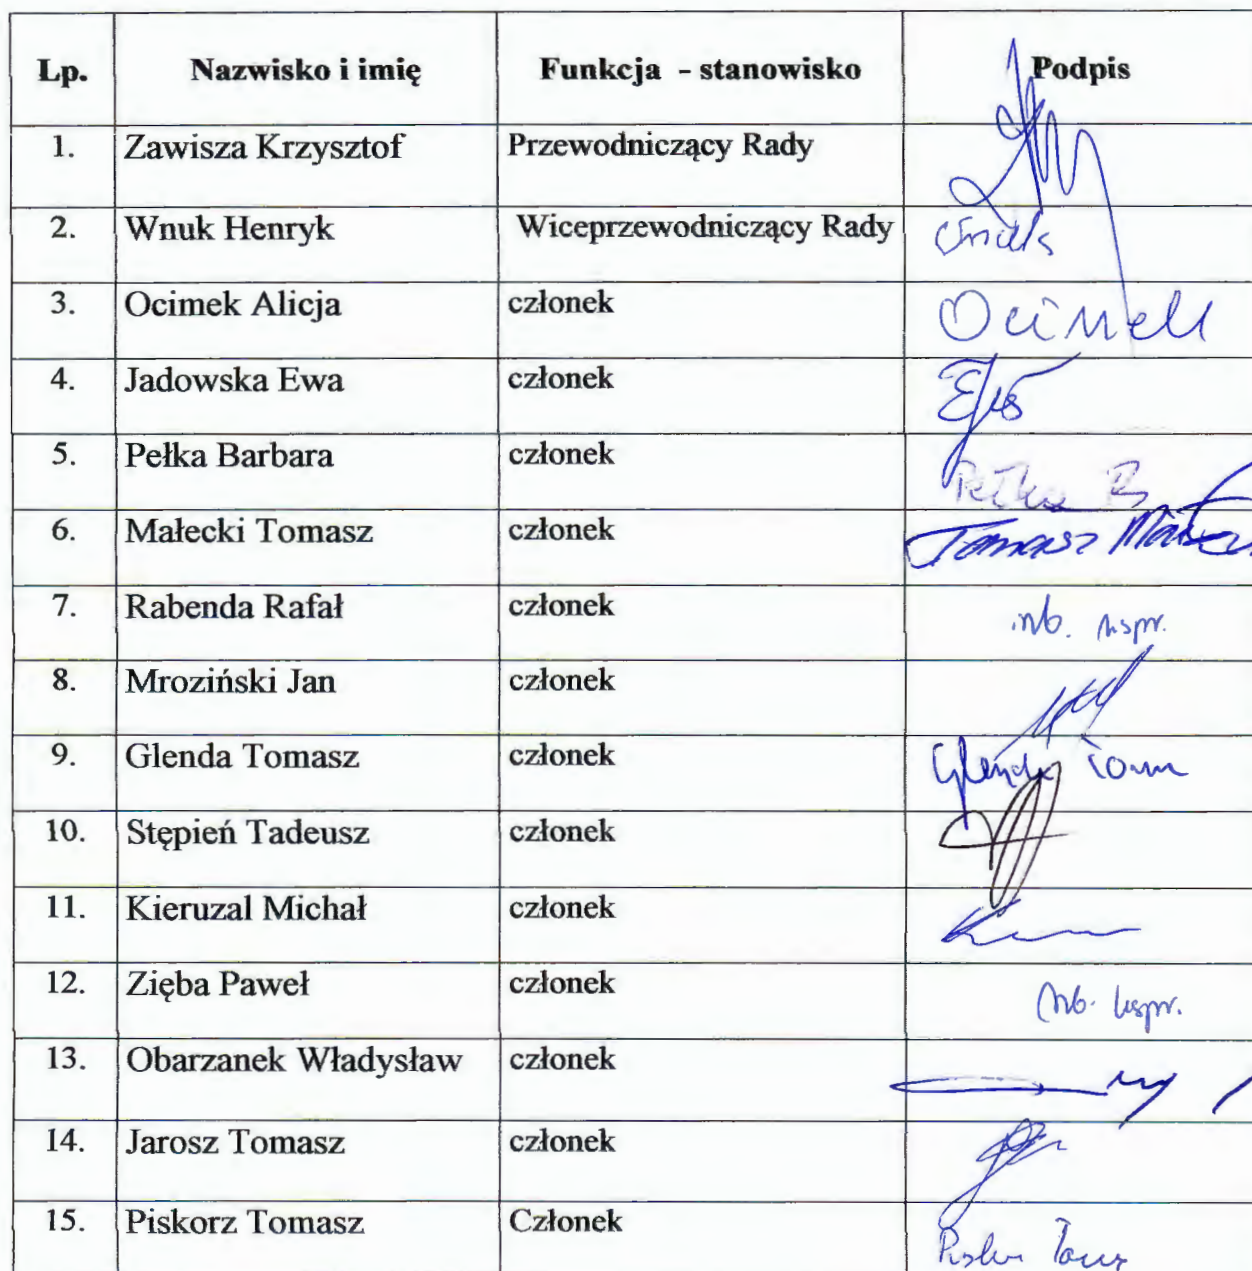 Lp. Nazwisko i imię Funkcja - stanowisko Podpis
1. Zawisza Krzysztof Przewodniczący Rady
2. Wnuk Henryk Wiceprzewodniczący Rady
3. Ocimek Alicja członek Ocimek
4. Jadowska Ewa członek
5. Pełka Barbara członek Pełka B
6. Małecki Tomasz członek Tomasz
7. Rabenda Rafał członek nb. uspr.
8. Mroziński Jan członek
9. Glenda Tomasz członek Glenda
10. Stępień Tadeusz członek
11. Kieruzal Michał członek
12. Zięba Paweł członek nb. uspr.
13. Obarzanek Władysław członek
14. Jarosz Tomasz członek
15. Piskorz Tomasz Członek